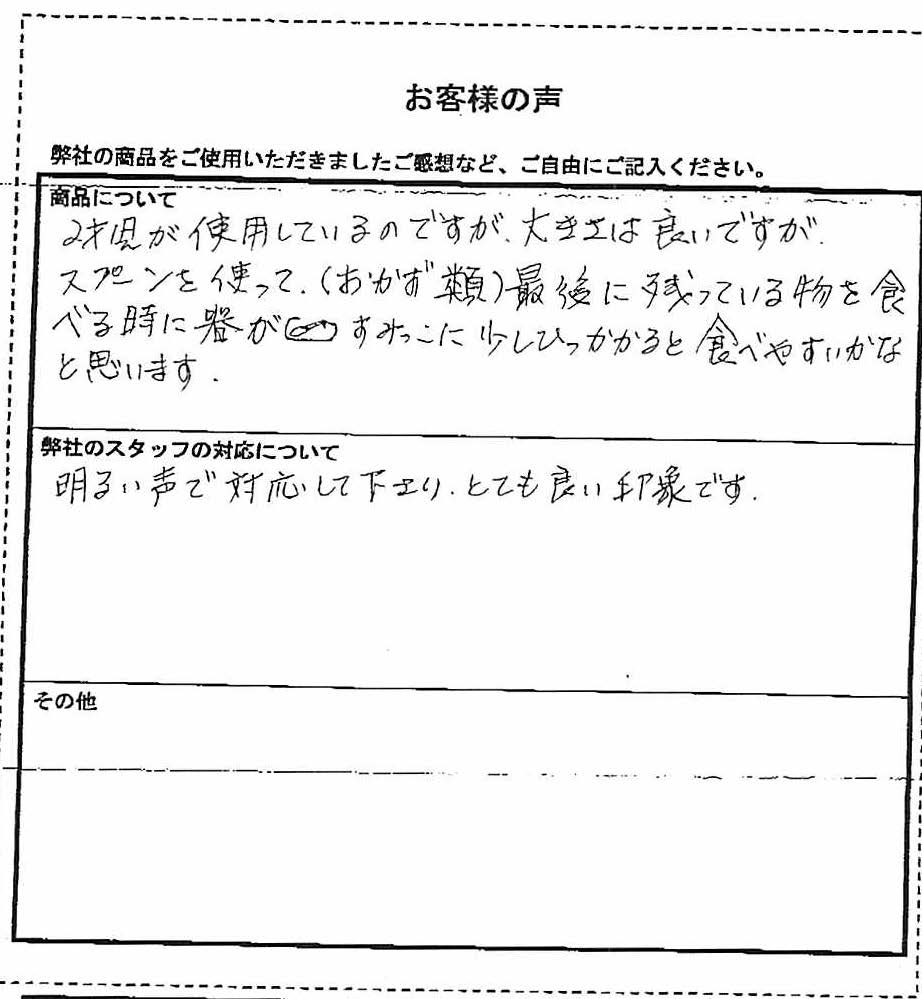 お客様の声
弊社の商品をご使用いただきましたご感想など、ご自由にご記入ください。
商品について
2才児が使用しているのですが、大きさは良いですが、
スプーンを使って、(おかず類)最後に残っている物を食
べる時に器が すみっこに少しひっかかると食べやすいかな
と思います.
弊社のスタッフの対応について
明るい声で対応して下さり、とても良い印象です.
その他